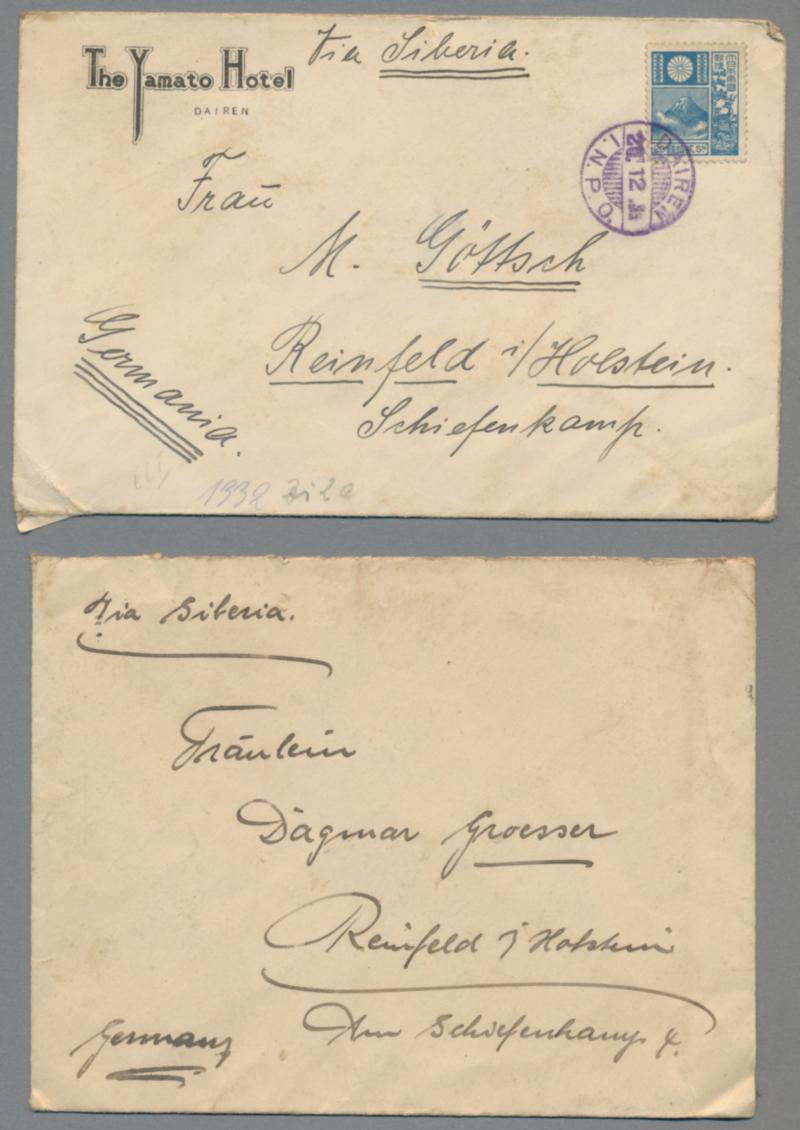 Via Siberia.
The Yamato Hotel
DAIREN
DAIREN
12
I.N.P.O.
Frau
M. Göttsch
Germania.
Reinfeld i/Holstein.
Schiefenkamp.
1932
Via Siberia.
Fräulein
Dagmar Groesser
Reinfeld i/Holstein
Am Schiefenkamp 4.
Germany